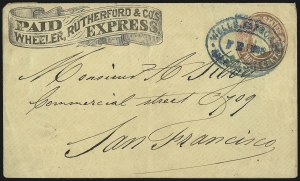 PAID
WHEELER, RUTHERFORD & CO'S
EXPRESS
WELLS, FARGO
Monsieur H
Commercial street 709
San Francisco